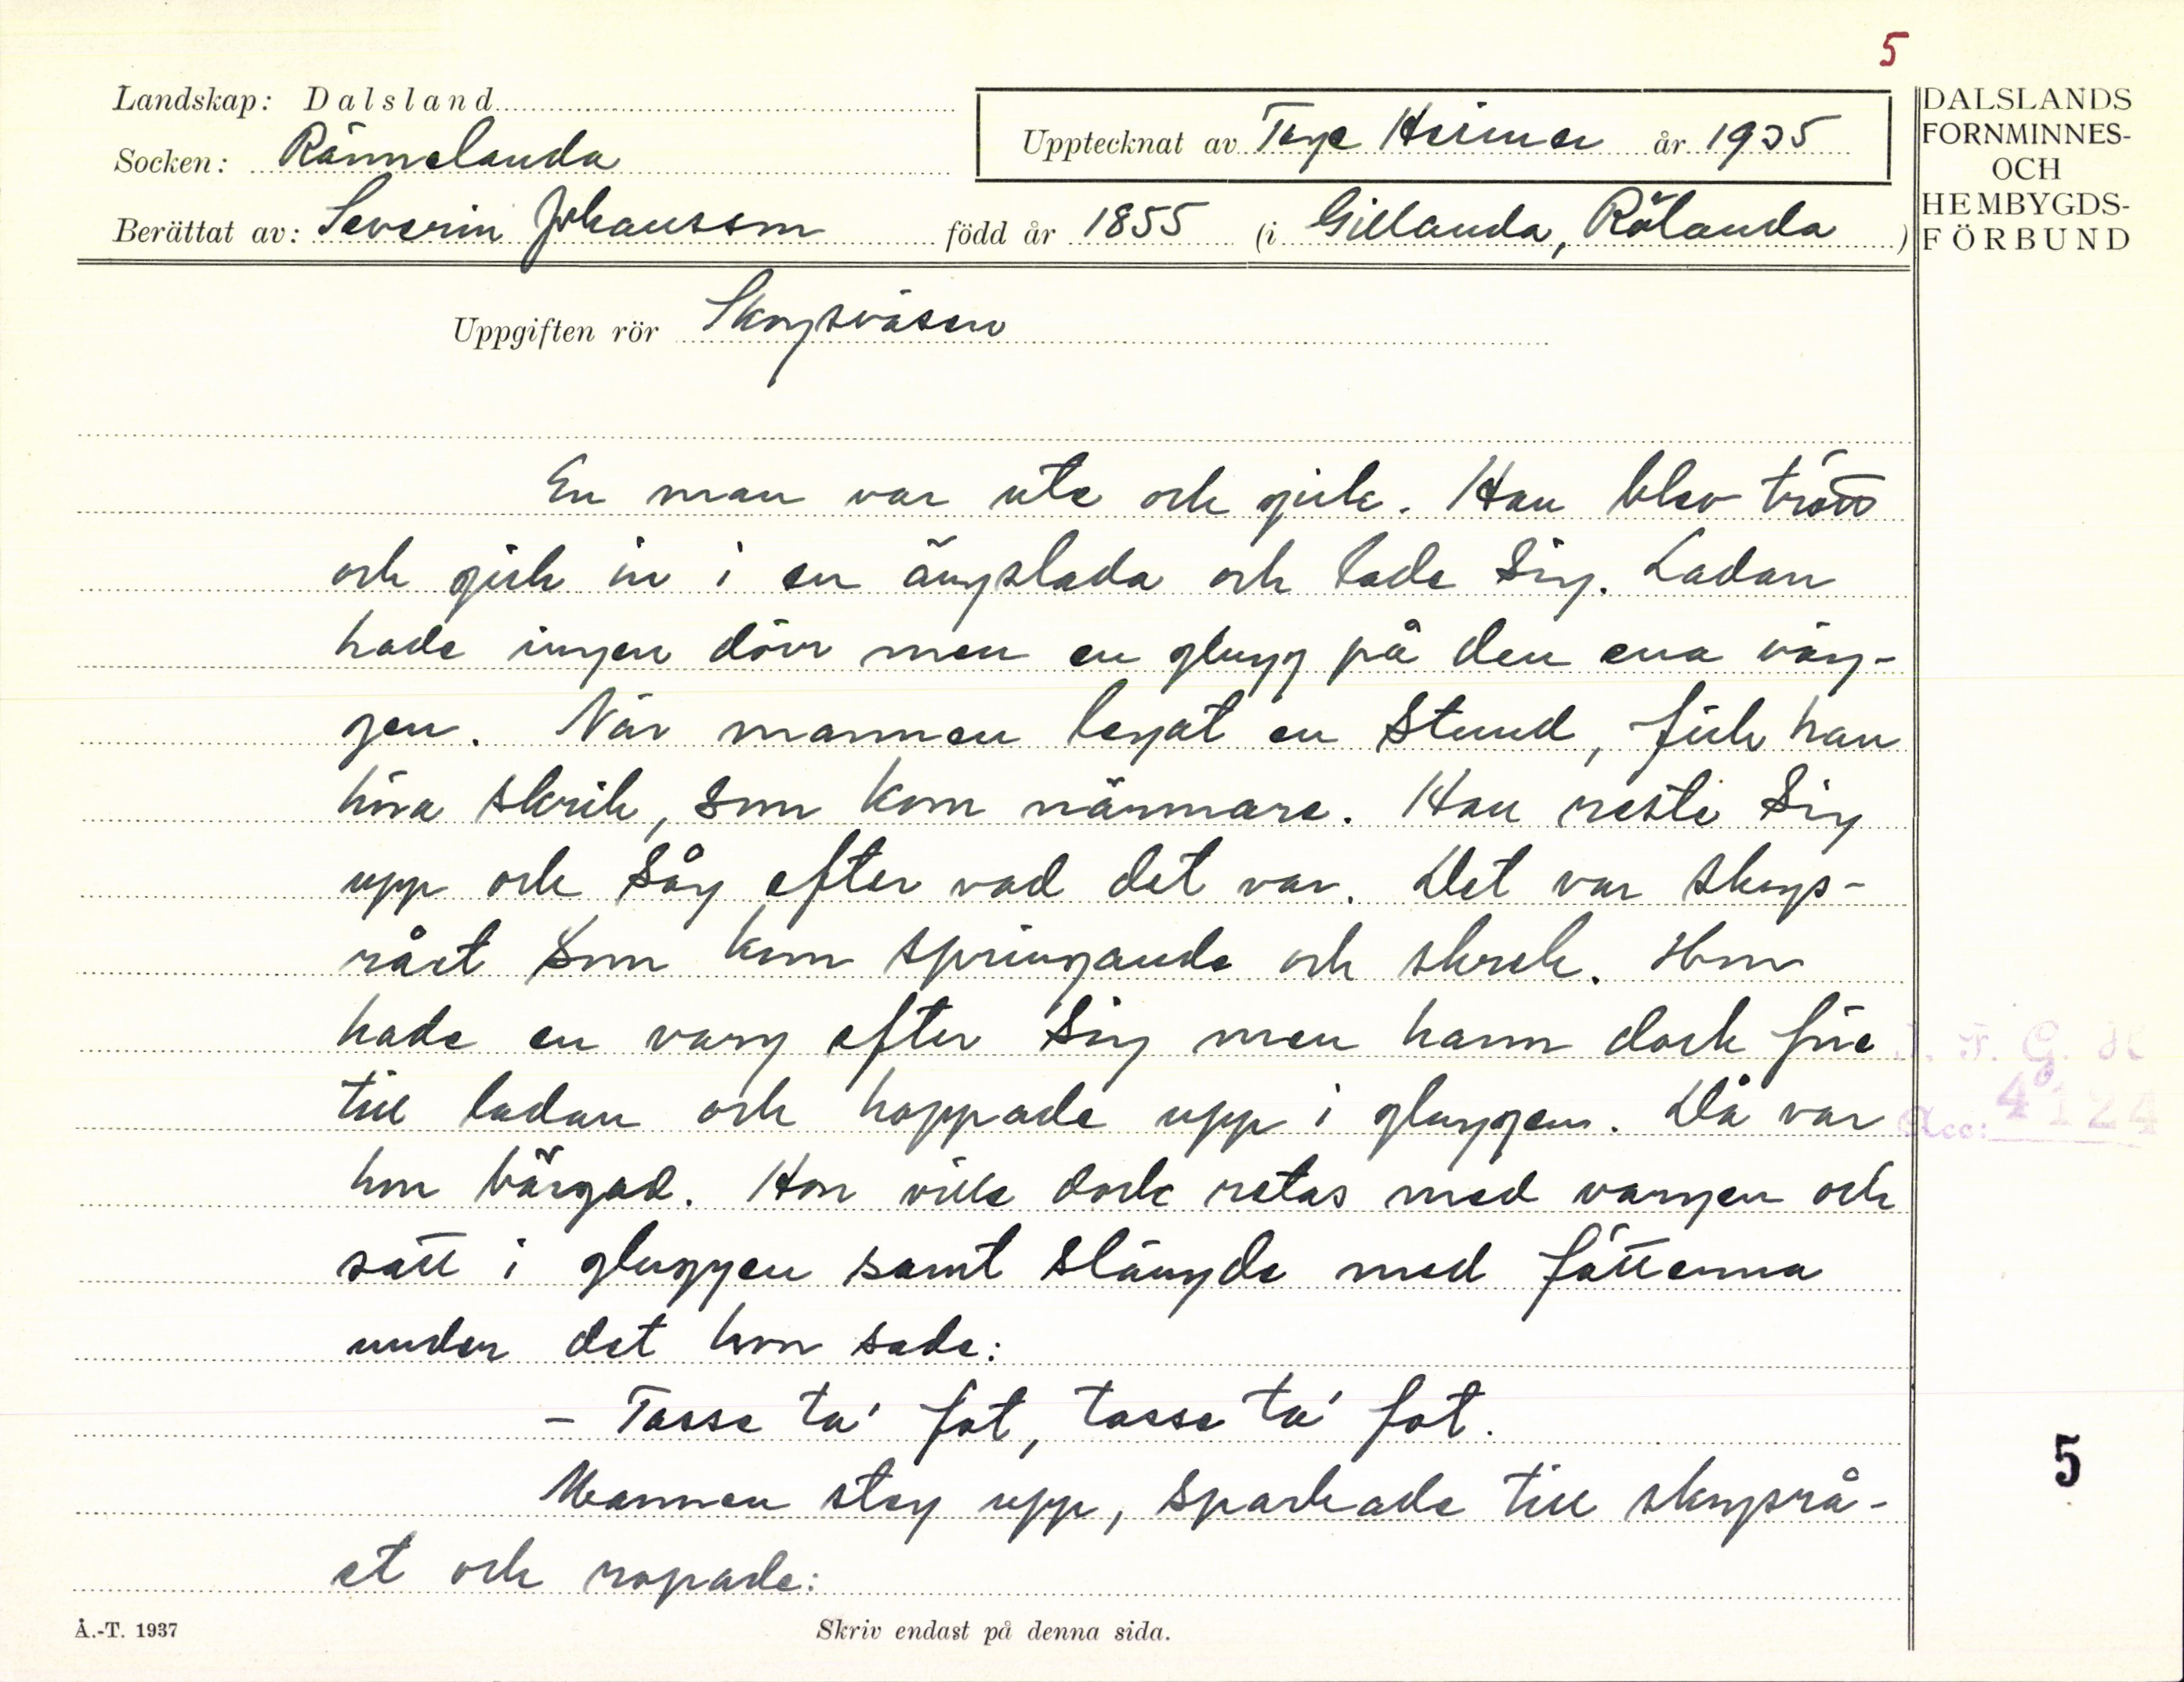 5
Landskap: Dalsland
Socken: Rännelanda
Upptecknat av Tage Heimer år 1935
Berättat av: Severin Johansson född år 1855 (i Gillanda, Rölanda)
DALSLANDS
FORNMINNES-
OCH
HEMBYGDS-
FÖRBUND
Uppgiften rör Skogsväsen
En man var ute och gick. Han blev trött
och gick in i en ängslada och lade sig. Ladan
hade ingen dörr men en glugg på den ena väg-
gen. När mannen legat en stund, fick han
höra skrik, som kom närmare. Han reste sig
upp och såg efter vad det var. Det var skogs-
rået som kom springande och skrek. Hon
hade en varg efter sig men hann dock före
till ladan och hoppade upp i gluggen. Då var
hon bärgad. Hon ville dock retas med vargen och
satt i gluggen samt slängde med fötterna
under det hon sade:
- Tasse ta' fot, tasse ta' fot.
Mannen steg upp, sparkade till skogsrå-
et och ropade:
F. G. H
Acc: 4124
5
Å.-T. 1937
Skriv endast på denna sida.